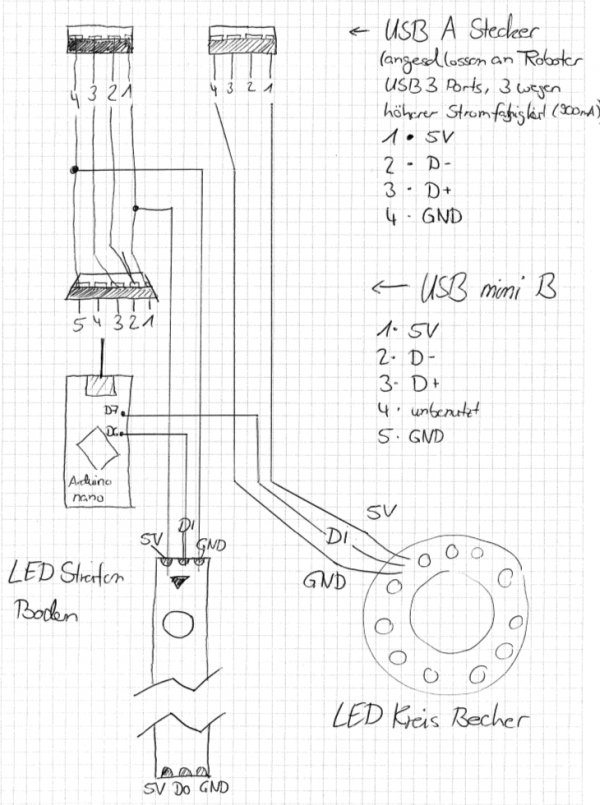 ← USB A Stecker
(angeschlossen an Roboter
USB 3 Ports, 3 wegen
höherer Stromfähigkeit (900mA)
1 • 5V
2 - D-
3 · D+
4 · GND
4 3 2 1
4 3 2 1
← USB mini B
1 · 5V
2 - D-
3 - D+
4 · unbenutzt
5 · GND
5 4 3 2 1
D7
D6
Arduino
nano
5V DI GND
LED Streifen
Boden
5V
DI
GND
LED Kreis Becher
5V Do GND